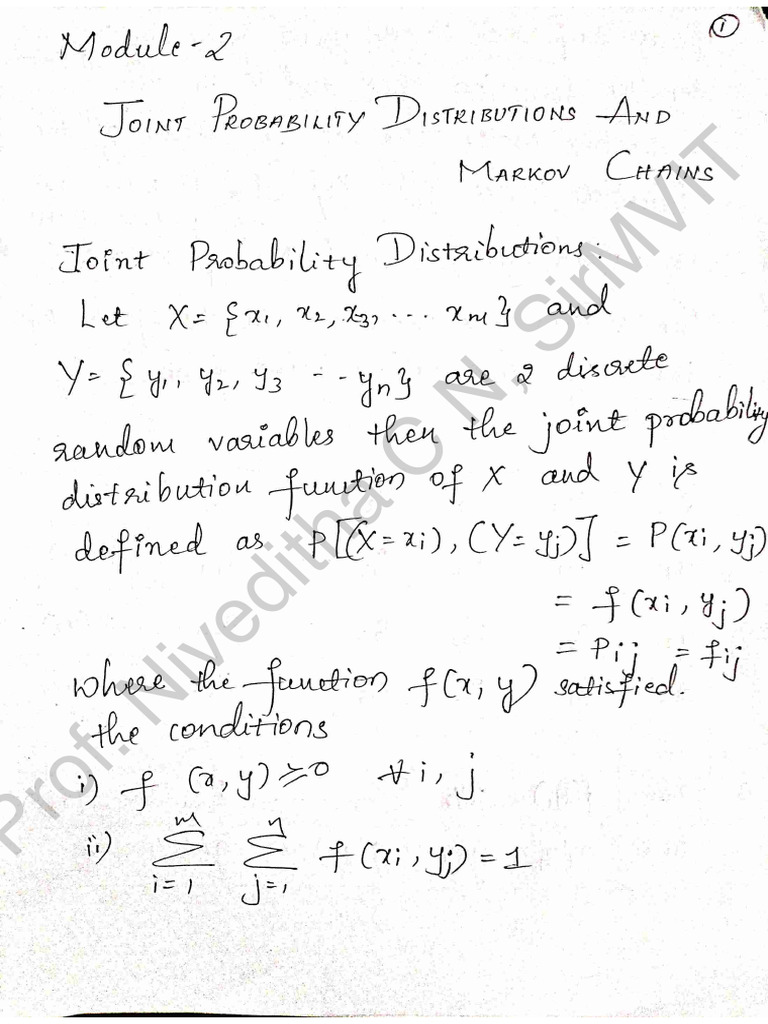 ①
Module-2
JOINT PROBABILITY DISTRIBUTIONS AND
MARKOV CHAINS
Joint Probability Distributions:
Let X = {x₁, x₂, x₃, ... xₘ} and
Y = {y₁, y₂, y₃ -- yₙ} are 2 discrete
random variables then the joint probability
distribution function of X and Y is
defined as P[(X=xᵢ), (Y=yⱼ)] = P(xᵢ, yⱼ)
= f(xᵢ, yⱼ)
= Pᵢⱼ = fᵢⱼ
where the function f(x, y) satisfied.
the conditions
i) f (x, y) ≥ 0 ∀ i, j.
ii) ∑ᵢ₌₁ᵐ ∑ⱼ₌₁ⁿ f(xᵢ, yⱼ) = 1
Prof. Niveditha C N, SirMVIT